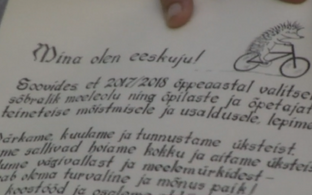 Mina olen eeskuju!
Soovides et 2017/2018 õppeaastal valitseks
sõbralik meeleolu ning õpilaste ja õpetajate
teineteise mõistmisele ja usaldusele, lepime
Märkame, kuulame ja tunnustame üksteist.
me sallivad hoiame kokku ja aitame üksteist
vägivallast ja meelemürkidest
olema turvaline ja mõnus paik!
koostööd ja